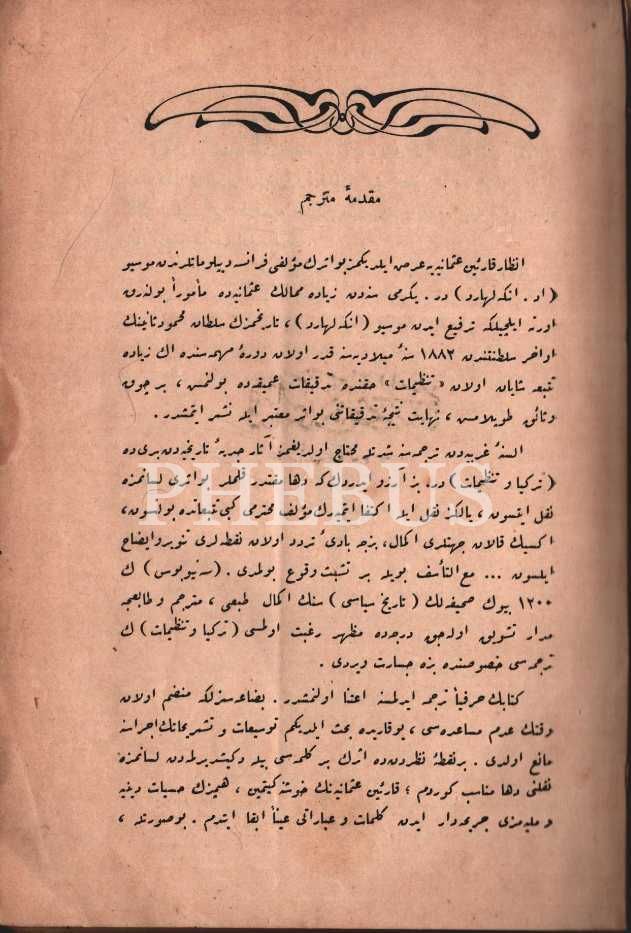 مقدمهٔ مترجم
انظار قارئین عثمانیه یه عرض ایلدیکمز بو اثرك مؤلفی فرانسه دیپلوماتلرندن موسیو
( او . انکه لهارد ) در . یکرمی سنه دن زیاده ممالك عثمانیه ده مأموراً بولنه رق
اورته ایلچیلکه ترفیع ایدن موسیو ( انکه لهارد ) ، تاریخمزك سلطان محمود ثانینك
اواخر سلطنتندن ١٨٨٢ سنهٔ میلادیه سنه قدر اولان دورهٔ مهمه سنده اك زیاده
تتبعه شایان اولان « تنظیمات » حقنده تدقیقات عمیقه ده بولنمس ، بر چوق
وثائق طوپلامس ، نهایت نتیجهٔ تدقیقاتنی بو اثر معتبر ایله نشر ایتمشدر .
السنهٔ غربیه دن ترجمه سنه شدتله محتاج اولدیغمز آثار جدیهٔ تاریخیه دن بری ده
( ترکیا و تنظیمات ) در . بز آرزو ایدردك که دها مقتدر قلملر بو اثری لسانمزه
نقل ایتسون ، یالکز نقل ایله اکتفا ایتمیه رك مؤلف محترمی کبی تتبعاتده بولنسون ،
اکسیك قالان جهتلری اکمال ، بزجه بادیٔ تردد اولان نقطه لری تنویر و ایضاح
ایلسون ... مع التأسف بویله بر تشبث وقوع بولمدی . ( سه نیوبوس ) ك
١٢٠٠ بیوك صحیفه لك ( تاریخ سیاسی ) سنك اکمال طبعی ، مترجم و طابعجه
مدار تشویق اوله جق درجه ده مظهر رغبت اولمسی ( ترکیا و تنظیمات ) ك
ترجمه سی خصوصنده بزه جسارت ویردی .
کتابك حرفیاً ترجمه ایدلمسنه اعتنا اولنمشدر . بضاعه سزلکه منضم اولان
وقتك عدم مساعده سی ، یوقاریده بحث ایلدیکم توسیعات و تشریحاتك اجراسنه
مانع اولدی . بر نقطهٔ نظردن ده اثرك بر کلمه سی بیله دکیشدیرلمه دن لسانمزه
نقلنی دها مناسب کوردم ؛ قارئین عثمانیه نك خوشنه کیتمین ، همزك حسیات دینیه
و ملیه مزی جریحه دار ایدن کلمات و عباراتی عیناً ابقا ایتدم . بو صورتله ،
PHEBUS